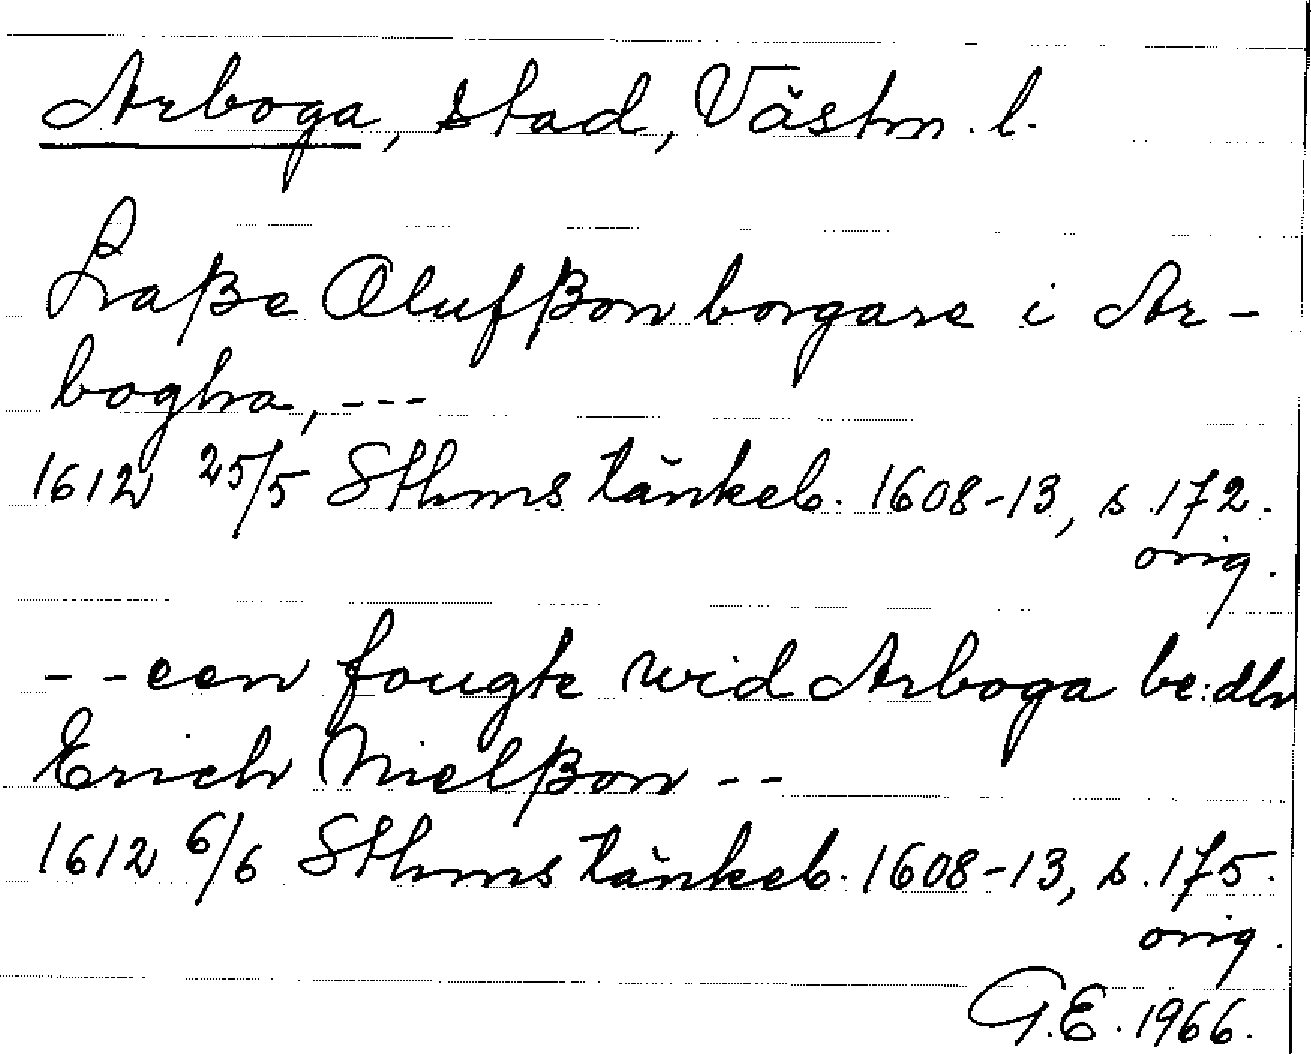 Arboga, stad, Västm. l.
Laße Olufßon borgare i Ar-
bogha, ---
1612 25/5 Sthms tänkeb. 1608-13, s. 172.
orig.
-- een fougte wid Arboga be:dh
Erich Nielßon --
1612 6/6 Sthms tänkeb. 1608-13, s. 175.
orig.
G.E. 1966.